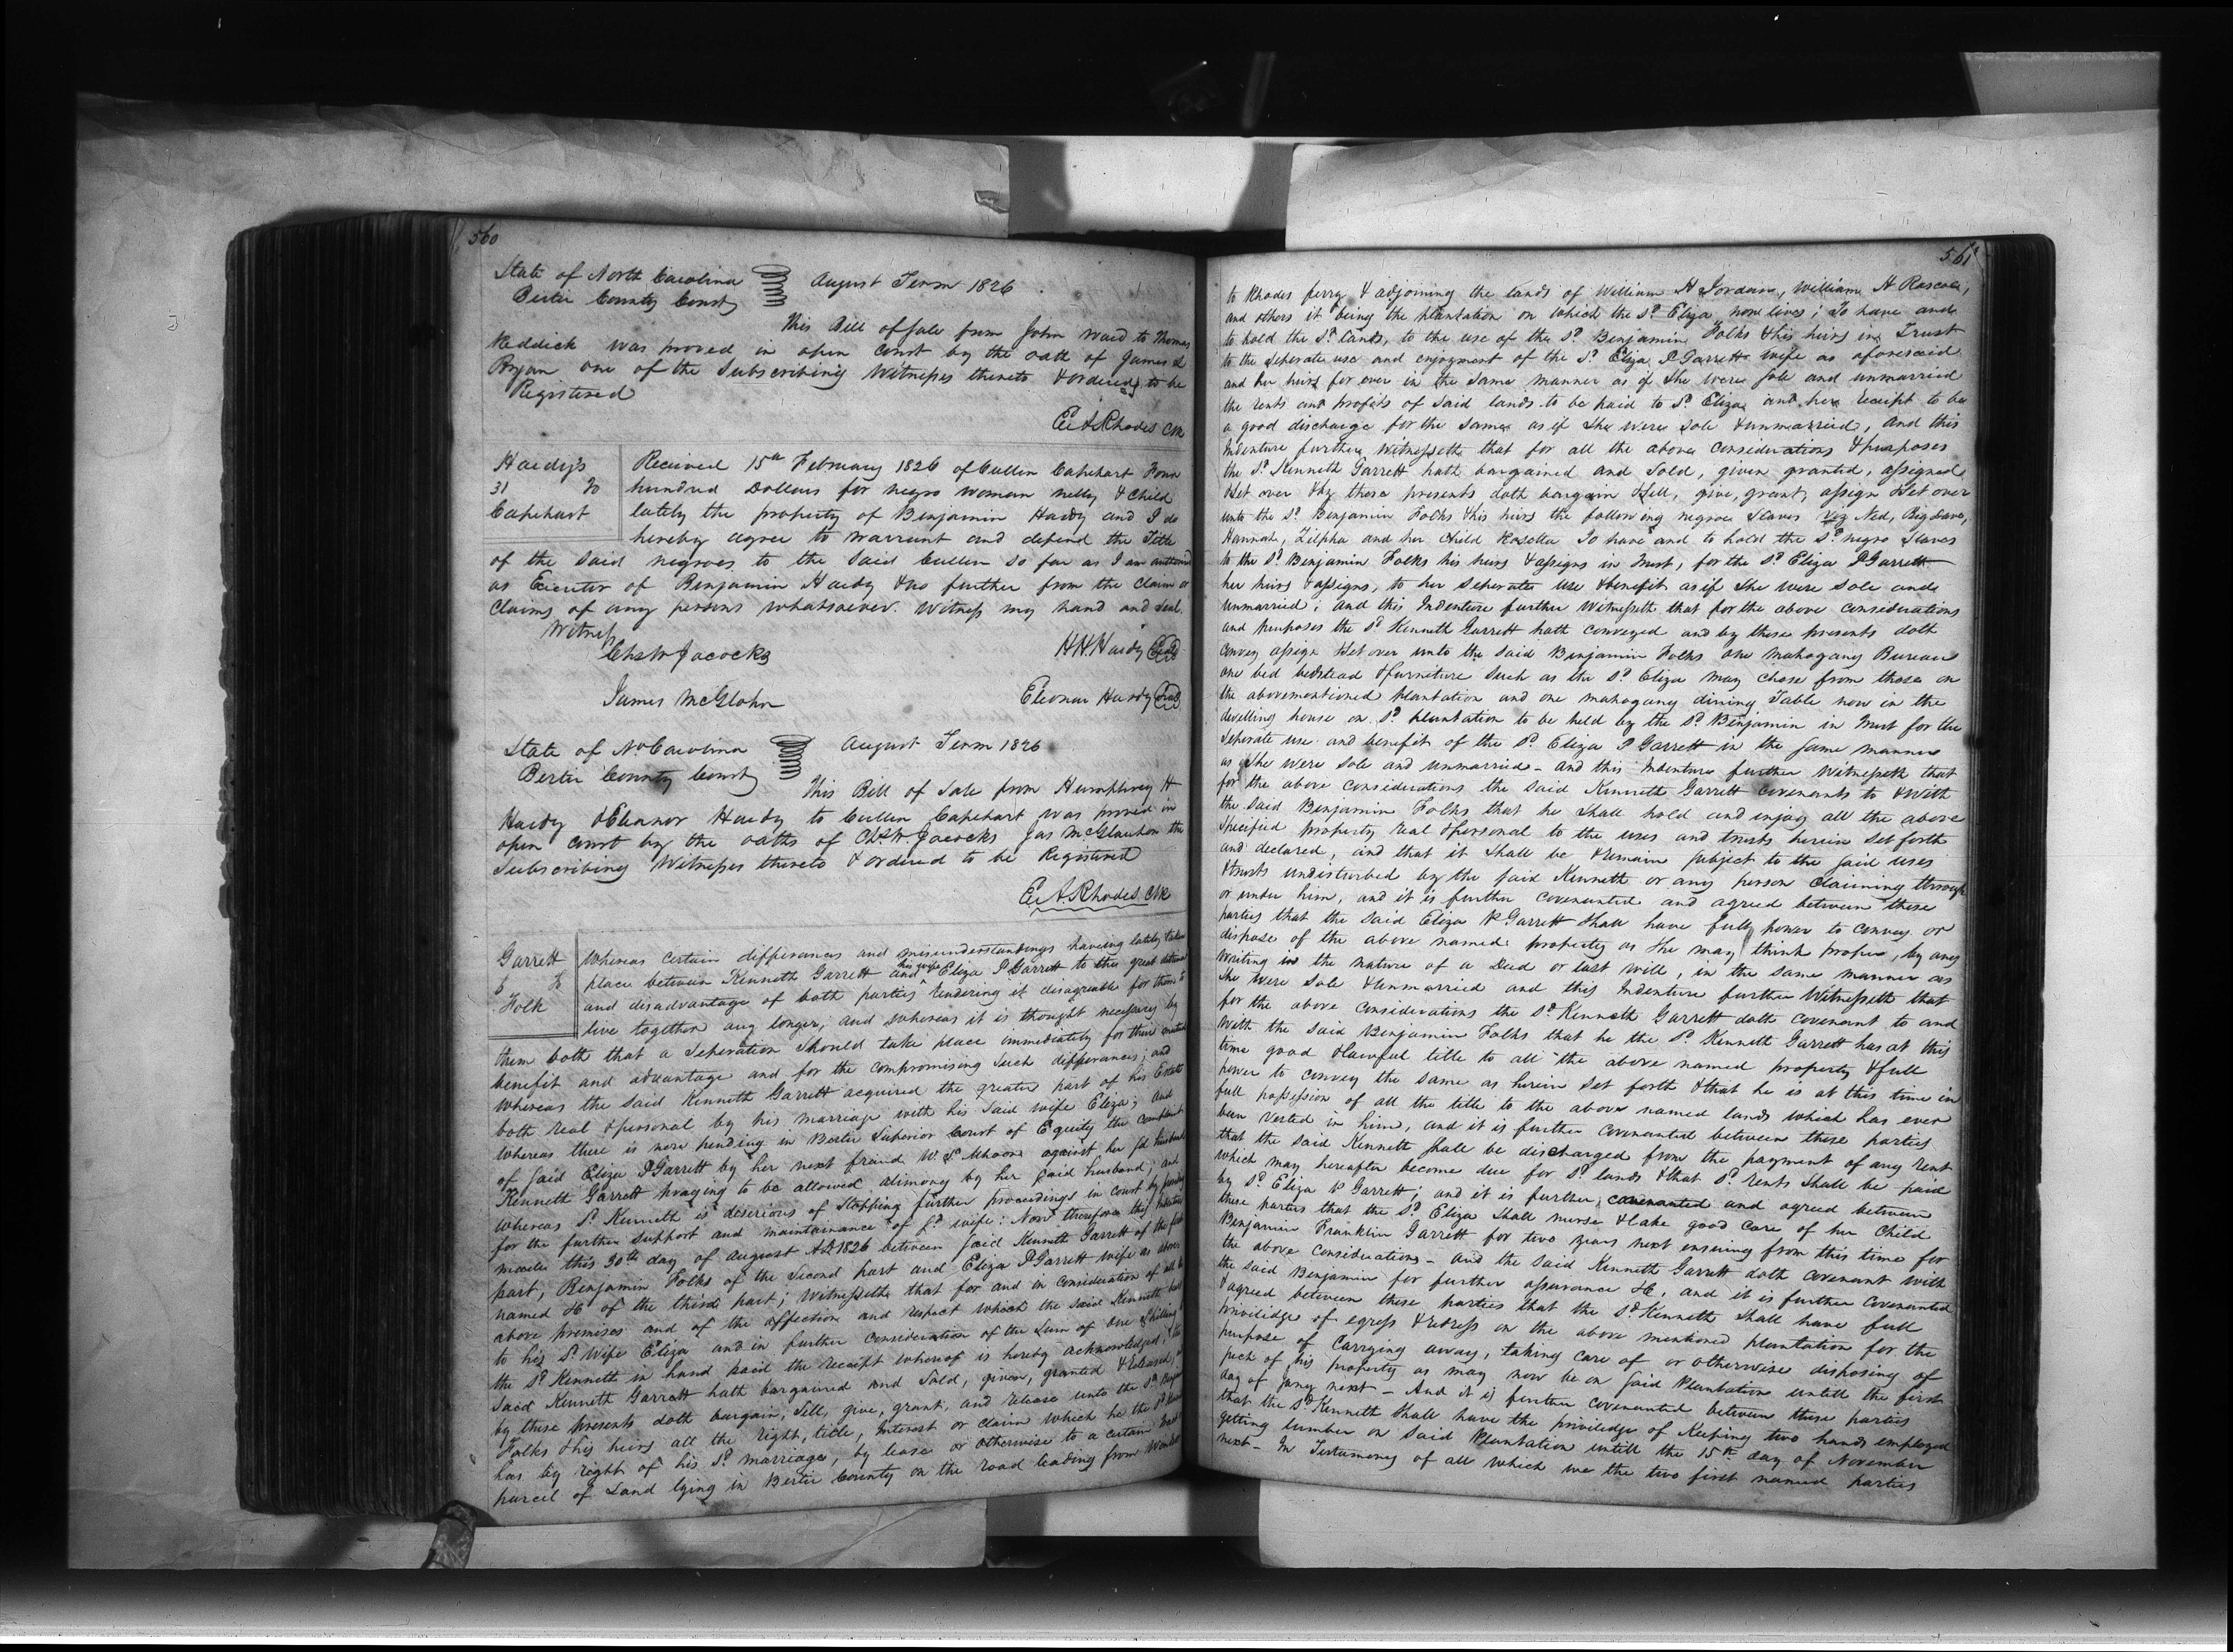 560
State of North Carolina
Bertie County Court
August Term 1826
This Bill of Sale from John Ward to Thomas
Reddick was proved in open court by the oath of James L
Bryan one of the Subscribing Witnesses thereto & ordered to be
Registered
E A Rhodes Clk
Hardy's
31 To
Capehart
Received 15th February 1826 of Cullen Capehart Four
hundred Dollars for negro woman nelly & Child
lately the property of Benjamin Hardy and I do
hereby agree to warrant and defend the Title
of the said negroes to the said Cullen so far as I am
as Executor of Benjamin Hardy & no further from the claim or
Claims of any persons whatsoever. Witness my hand and Seal.
Witness
Chs W Jacocks
H H Hardy Seal
James McGlohn
Eleonar Hardy Seal
State of No Carolina
Bertie County Court
August Term 1826
This Bill of Sale from Humphrey H
Hardy & Eleanor Hardy to Cullen Capehart was proved in
open court by the oaths of Chs. W. Jacocks Jas McGlauhon the
Subscribing Witnesses thereto & ordered to be Registered
E. A. Rhodes Clk
Garrett
To
Folk
Whereas certain differances and misunderstandings haveing lately taken
place between Kenneth Garrett and his wife Eliza P Garrett to the great
and disadvantage of both parties rendering it disagreable for them to
live together any longer, and whereas it is thought necessary by
them both that a Seperation Should take place immediately for their mutual
benefit and advantage and for the compromising Such differances; and
Whereas the said Kenneth Garrett acquired the greater part of his Estate
both real & personal by his marriage with his said wife Eliza; and
whereas there is now pending in Bertie Superior Court of Equity the complaint
of said Eliza P Garrett by her next friend W. S. Mhoon against her sd husband
Kenneth Garrett praying to be allowed alimony by her said husband; and
whereas Sd Kenneth is desirious of Stopping further proceedings in court by
for the further support and maintainance of sd wife: Now therefore this Indenture
made this 30th day of August AD 1826 between said Kenneth Garrett of the first
part, Benjamin Folks of the Second part and Eliza P Garrett wife as above
named &c of the third part; Witnesseth that for and in consideration of all the
above premises and of the affection and respect which the said Kenneth hath
to his Sd Wife Eliza and in further consideration of the Sum of one Shilling to
the Sd Kenneth in hand paid the receipt whereof is hereby acknowledged, the
Said Kenneth Garrett hath bargained and Sold, given, granted & Released, &
by these presents doth bargain, Sell, give, grant, and release unto the Sd
Folks & his heirs all the right, title, interest or claim which he the Sd
has by right of his Sd marriage, by lease or otherwise to a certain
parcel of Land lying in Bertie County on the road leading from
561
to Rhodes ferry & adjoining the lands of William H Jordan, William H Rascoe,
and others it being the plantation on which the sd Eliza now lives; To have and
to hold the Sd lands, to the use of the Sd Benjamin Folks & his heirs in Trust
to the Seperate use and enjoyment of the Sd Eliza P Garrett wife as aforesaid
and her heirs for ever in the same manner as if She were sole and unmarried
the rents and profits of said lands to be paid to Sd Eliza and her receipt to be
a good discharge for the same as if She were sole & unmarried, and this
Indenture further Witnesseth that for all the above considerations & purposes
the Sd Kenneth Garrett hath bargained and Sold, given granted, assigned
& Set over & by these presents doth bargain Sell, give, grant, assign & Set over
unto the Sd Benjamin Folks & his heirs the following negroe Slaves viz Ned, Big Dave,
Hannah, Zilpha and her Child Rosetta To have and to hold the Sd negro Slaves
to the Sd Benjamin Folks his heirs & assigns in trust, for the Sd Eliza P Garrett
her heirs & assigns, to her Seperate use & benefit as if She were sole and
unmarried; and this Indenture further Witnesseth that for the above considerations
and purposes the sd Kenneth Garrett hath conveyed and by these presents doth
convey assign & Set over unto the said Benjamin Folks one mahogany Bureau
one bed bedstead & furniture Such as the sd Eliza may chose from those on
the abovementioned plantation and one mahogany dining Table now in the
dwelling house on sd plantation to be held by the sd Benjamin in trust for the
Seperate use and benefit of the Sd Eliza P Garrett in the same manner
as She were sole and unmarried - and this Indenture further Witnesseth that
for the above considerations the said Kenneth Garrett covenants to & with
the said Benjamin Folks that he Shall hold and injoy all the above
Specified property real & personal to the uses and trusts herein Set forth
and declared, and that it Shall be & remain subject to the said uses
& trusts undisturbed by the said Kenneth or any person claiming through
or under him, and it is further covenanted and agreed between these
parties that the said Eliza P Garrett Shall have full power to convey or
dispose of the above named property as She may think proper, by any
writing in the nature of a Deed or last will, in the same manner as
She were Sole & unmarried and this Indenture further Witnesseth that
for the above considerations the sd Kenneth Garrett doth covenant to and
with the said Benjamin Folks that he the Sd Kenneth Garrett has at this
time good & lawful title to all the above named property & full
power to convey the same as herein Set forth & that he is at this time in
full possession of all the title to the above named lands which has ever
been vested in him, and it is further covenanted between these parties
that the said Kenneth Shall be discharged from the payment of any rent
which may hereafter become due for Sd lands & that Sd rents Shall be paid
by Sd Eliza P Garrett; and it is further covenanted and agreed between
these parties that the sd Eliza Shall nurse & take good care of her Child
Benjamin Franklin Garrett for two years next ensuing from this time for
the above considerations - and the said Kenneth Garrett doth covenant with
the said Benjamin for further assurance &c, and it is further covenanted
& agreed between these parties that the sd Kenneth Shall have full
priviledge of egress & redress on the above mentioned plantation for the
purpose of Carrying away, taking care of or otherwise disposing of
such of his property as may now be on said Plantation untill the first
day of Jany next - And it is further covenanted between these parties
that the sd Kenneth Shall have the priviledge of Keeping two hands employed
getting lumber on said Plantation untill the 15th day of November
next - In Testamony of all which we the two first named parties